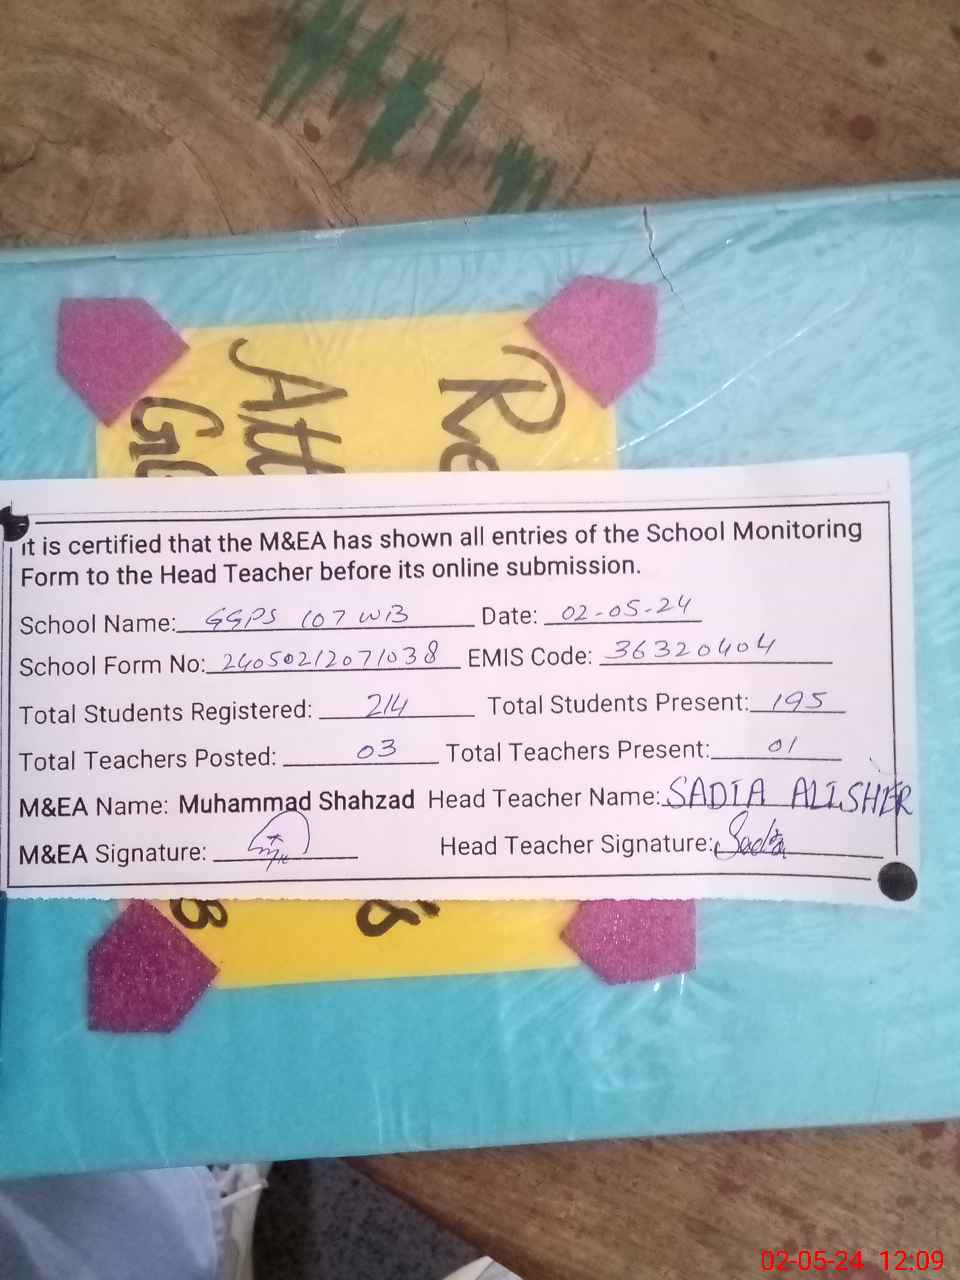 Re
Att
Ge
it is certified that the M&EA has shown all entries of the School Monitoring
Form to the Head Teacher before its online submission.
School Name: GGPS 107 WB Date: 02-05-24
School Form No: 24050212071038 EMIS Code: 36320404
Total Students Registered: 214 Total Students Present: 195
Total Teachers Posted: 03 Total Teachers Present: 01
M&EA Name: Muhammad Shahzad Head Teacher Name: SADIA ALISHER
M&EA Signature: Head Teacher Signature: Sadia
02-05-24 12:09